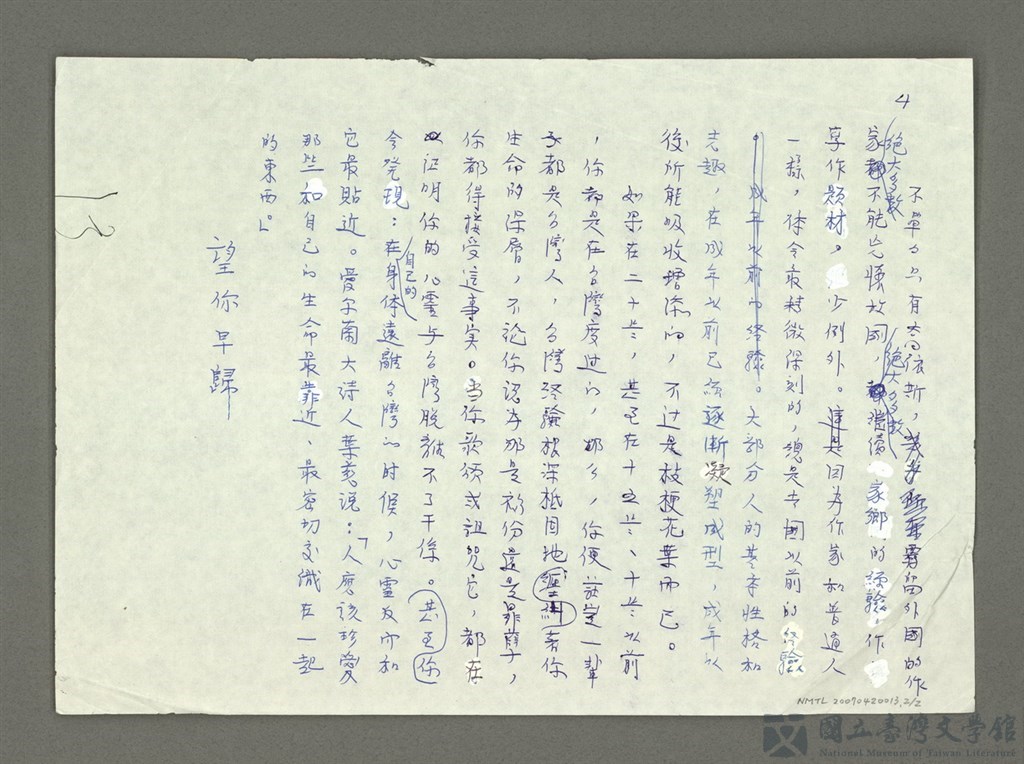 4
不單單只有喬依斯,留外國的作
家絕大多數不能忘懷故國,絕大多數繼續家鄉的經驗,作
享作題材。少例外。這是因為作家和普通人
一樣,体会最精微深刻的,總是去國以前的經驗
,成年以前的經驗。大部分人的基本性格和
志趣,在成年以前已経逐漸凝塑成型,成年以
後所能吸收增添的,不过是枝梗花葉而已。
如果在二十岁,甚至在十五岁、十岁以前
,你都是在台灣度过的,那么,你便註定一輩
子都是台灣人,台灣经驗根深柢固地盤據著你
生命的深層,不論你認为那是福份還是罪孽,
你都得接受這事実。当你歌頌或詛咒它,都在
証明你的心霊与台灣脱離不了干係。甚至你
会発現:在自己的身体遠離台灣的时候,心霊反而和
它最貼近。愛尔蘭大詩人葉慈說:「人應該珍愛
那些和自己的生命最靠近、最密切交織在一起
的東西」。
望你早歸
NMTL 20070420013,2/2
國立臺灣文學館
National Museum of Taiwan Literature